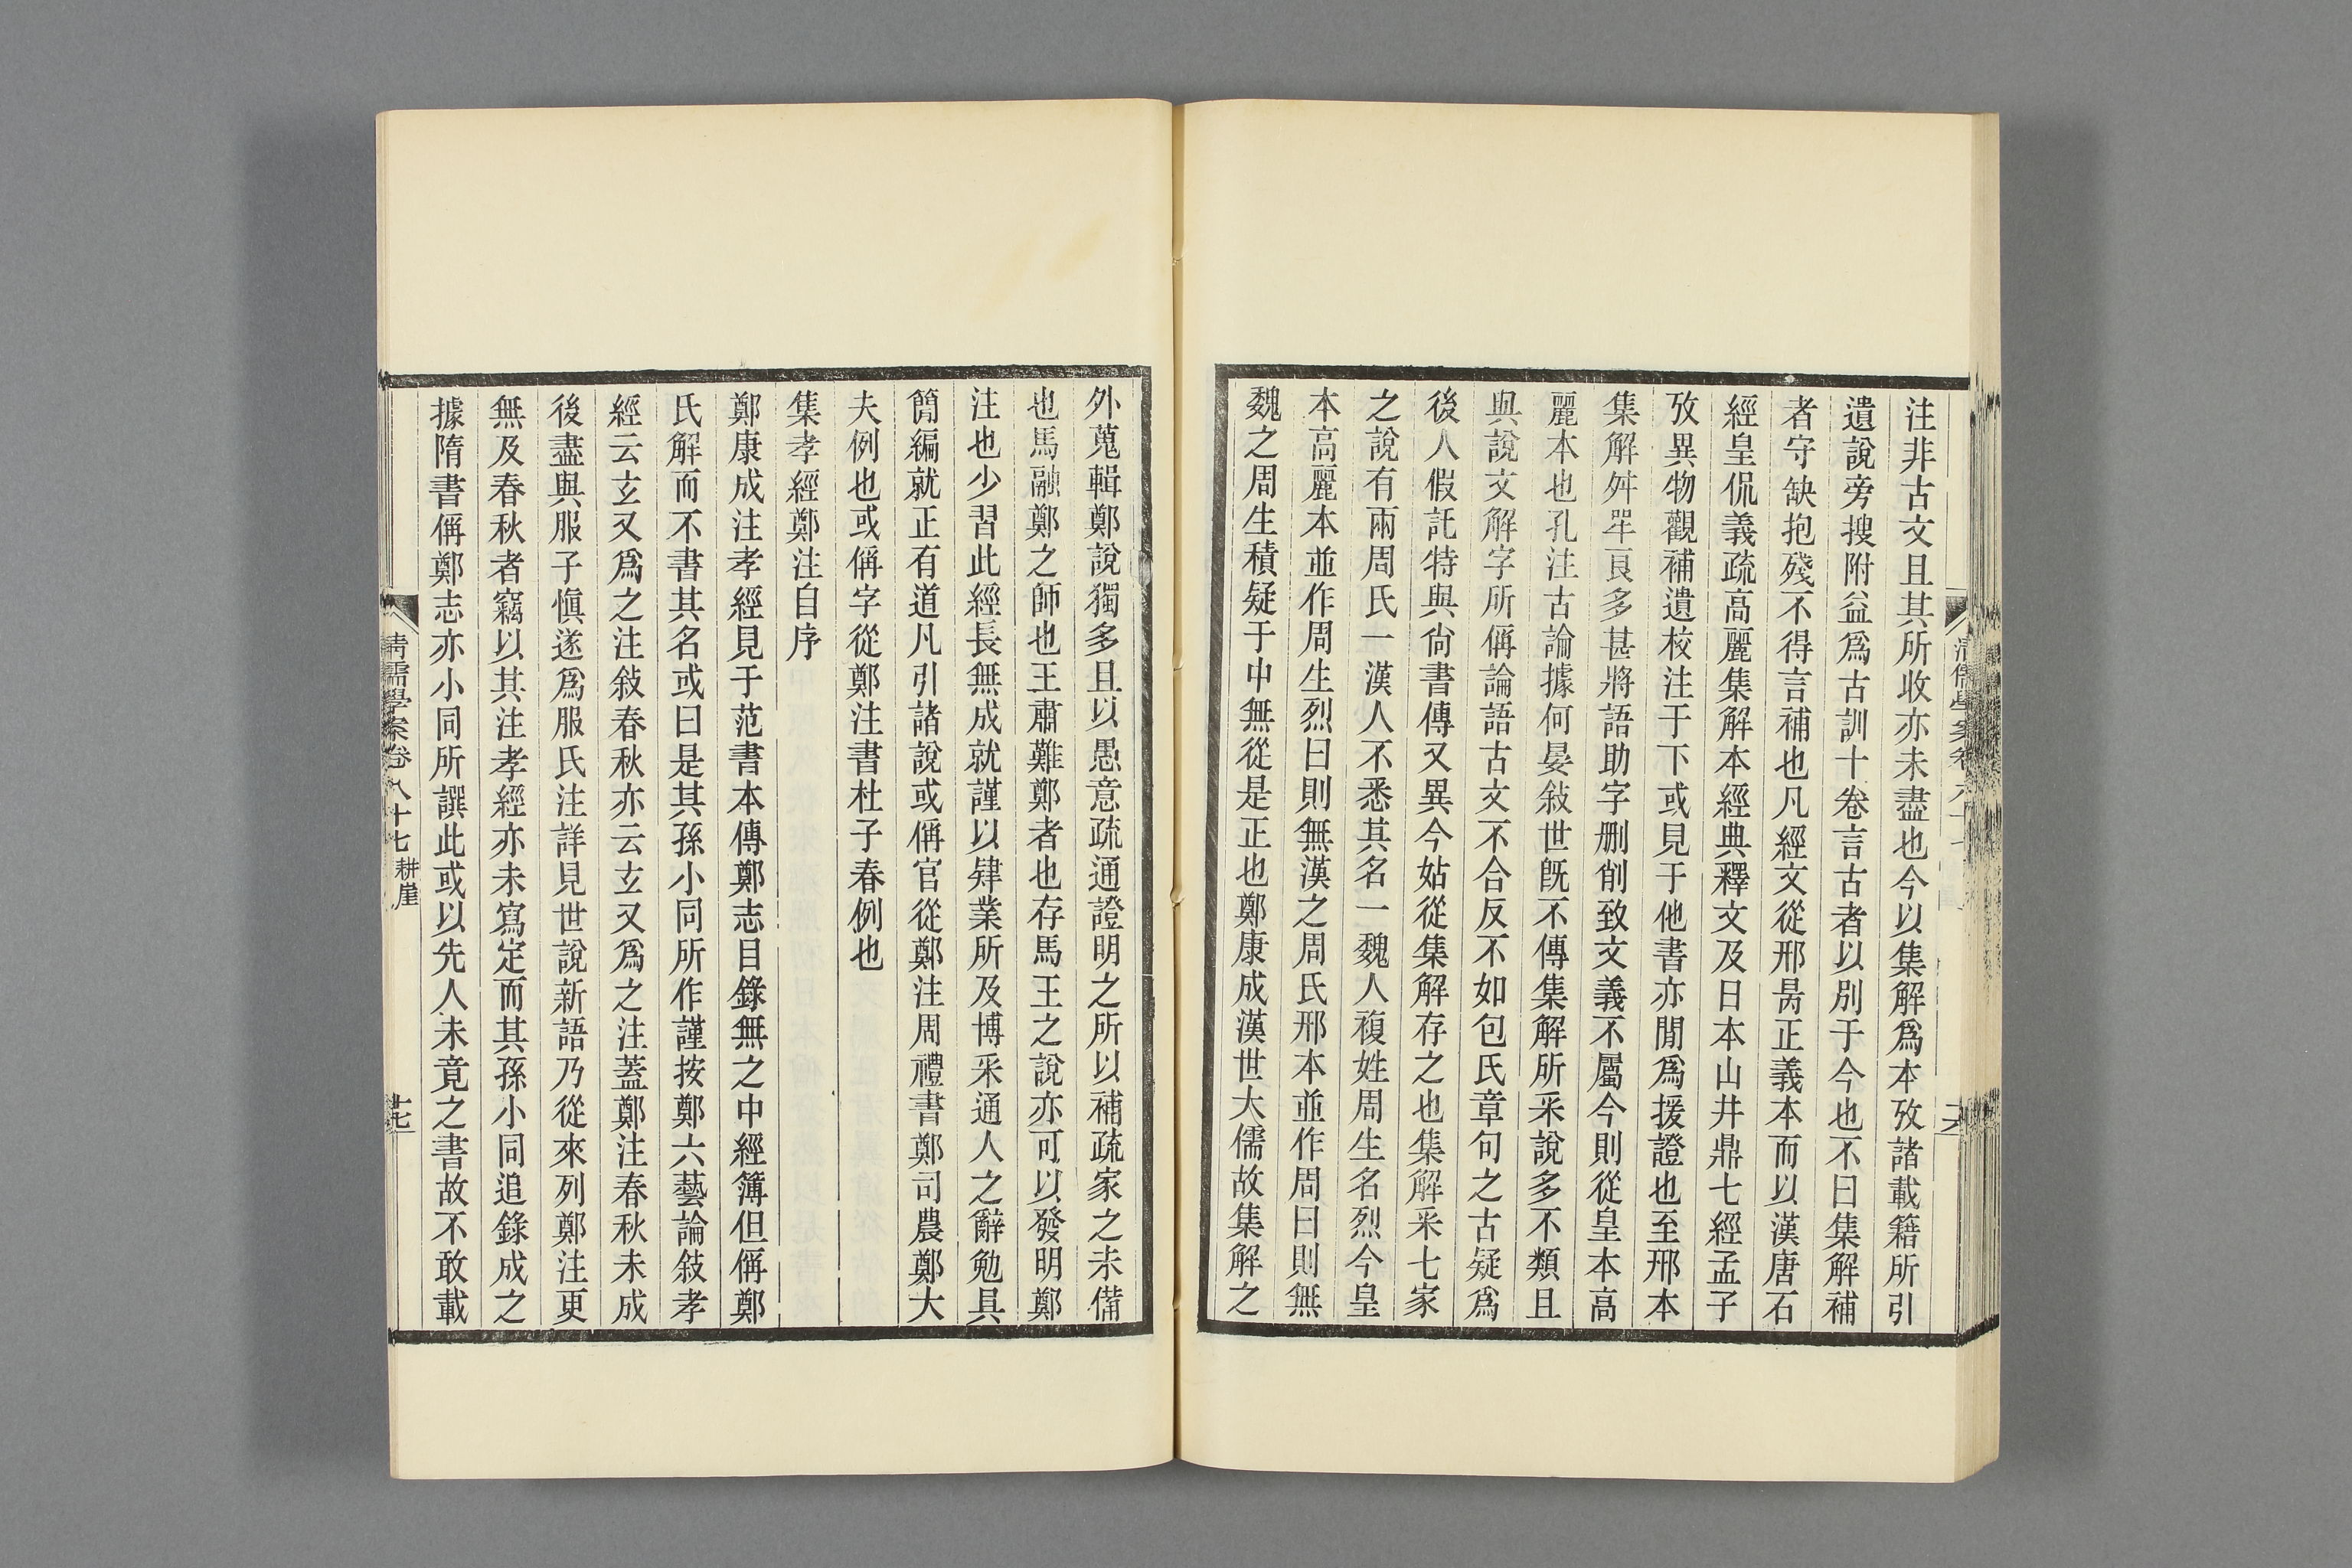 注非古文且其所收亦未盡也今以集解爲本攷諸載籍所引
遺說旁搜附益爲古訓十卷言古者以別于今也不曰集解補
者守缺抱殘不得言補也凡經文從邢昺正義本而以漢唐石
經皇侃義疏高麗集解本經典釋文及日本山井鼎七經孟子
攷異物觀補遺校注于下或見于他書亦閒爲援證也至邢本
集解舛牽頁多甚將語助字删削致文義不屬今則從皇本高
麗本也孔注古論據何晏敍世旣不傳集解所采說多不類且
與說文解字所偁論語古文不合反不如包氏章句之古疑爲
後人假託特與尙書傳又異今姑從集解存之也集解采七家
之說有兩周氏一漢人不悉其名一魏人複姓周生名烈今皇
本高麗本並作周生烈曰則無漢之周氏邢本並作周曰則無
魏之周生積疑于中無從是正也鄭康成漢世大儒故集解之
外蒐輯鄭說獨多且以愚意疏通證明之所以補疏家之未備
也馬融鄭之師也王肅難鄭者也存馬王之說亦可以發明鄭
注也少習此經長無成就謹以肄業所及博采通人之辭勉具
簡編就正有道凡引諸說或偁官從鄭注周禮書鄭司農鄭大
夫例也或偁字從鄭注書杜子春例也
集孝經鄭注自序
鄭康成注孝經見于范書本傳鄭志目錄無之中經簿但偁鄭
氏解而不書其名或曰是其孫小同所作謹按鄭六藝論敍孝
經云玄又爲之注敍春秋亦云玄又爲之注蓋鄭注春秋未成
後盡與服子愼遂爲服氏注詳見世說新語乃從來列鄭注更
無及春秋者竊以其注孝經亦未寫定而其孫小同追錄成之
據隋書偁鄭志亦小同所譔此或以先人未竟之書故不敢載
清儒學案卷八十七 耕崖
十七